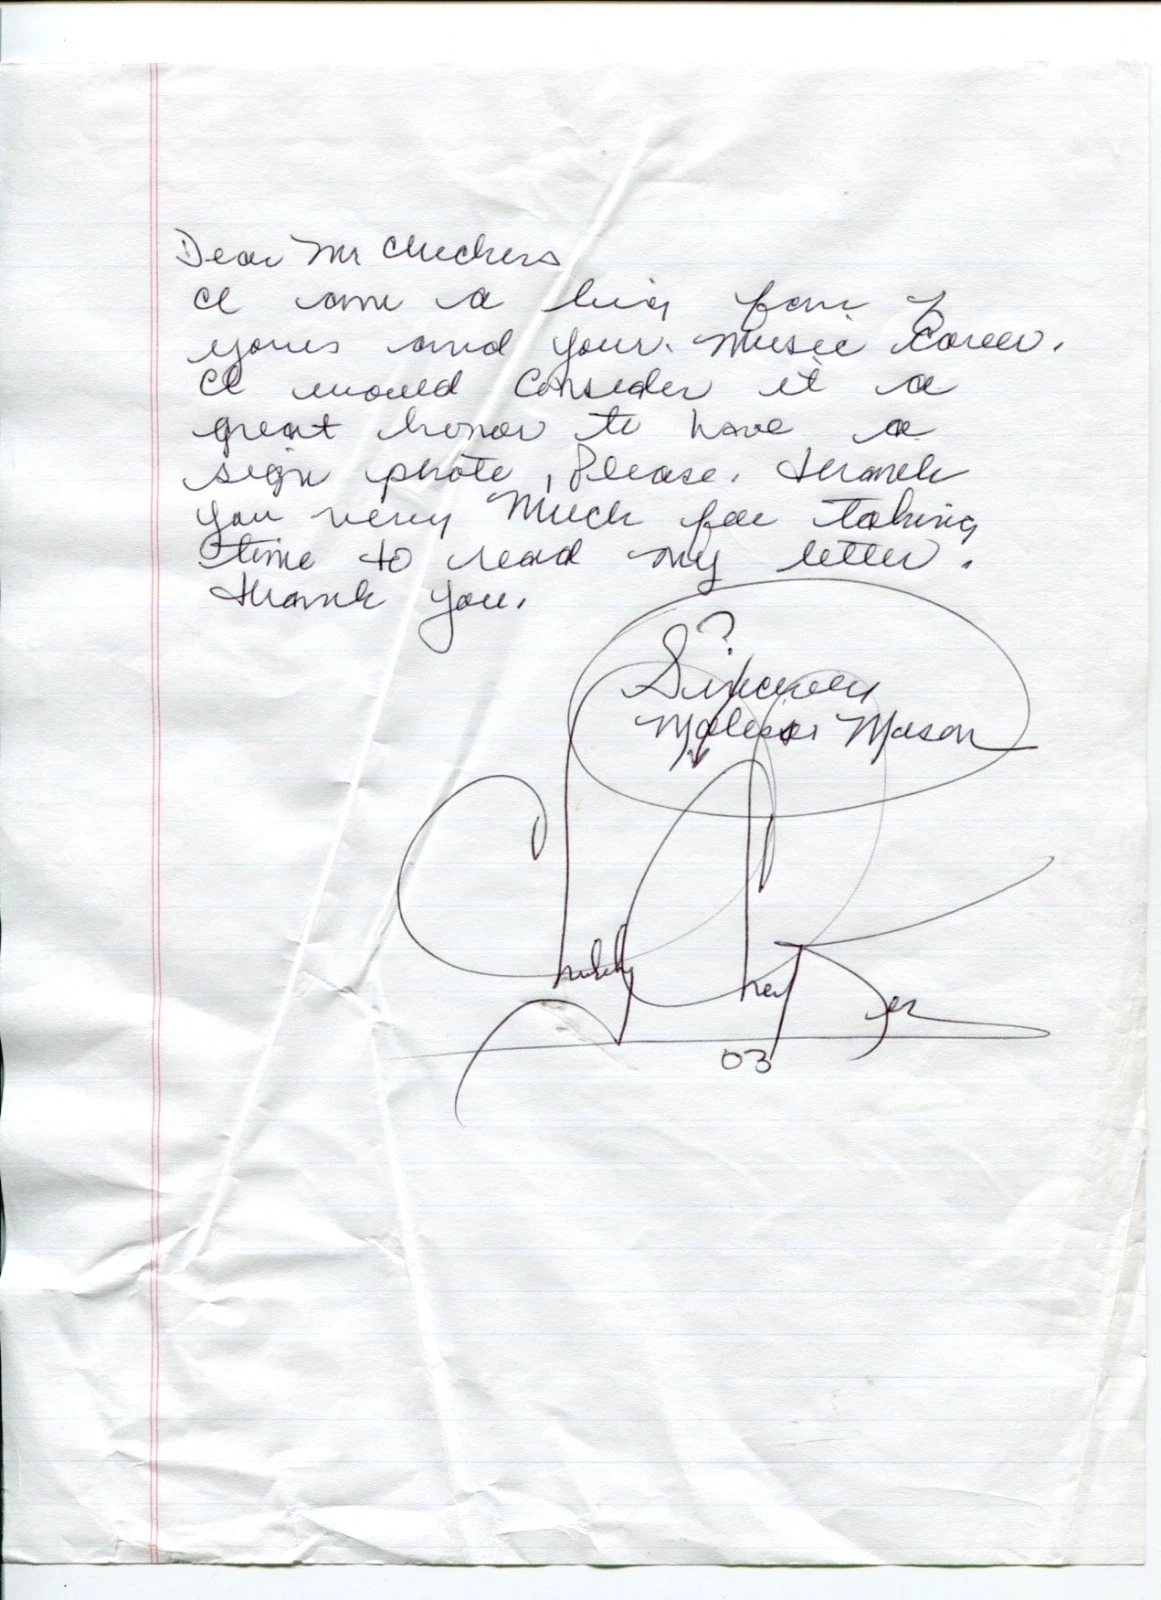 Dear Mr Checkers
I am a big fan of
yours and your music career.
I would consider it a
great honor to have a
sign photo, Please. Thank
you very much for taking
time to read my letter.
Thank you.
?
Sincerely
Melissa Mason
Chubby Checker
03